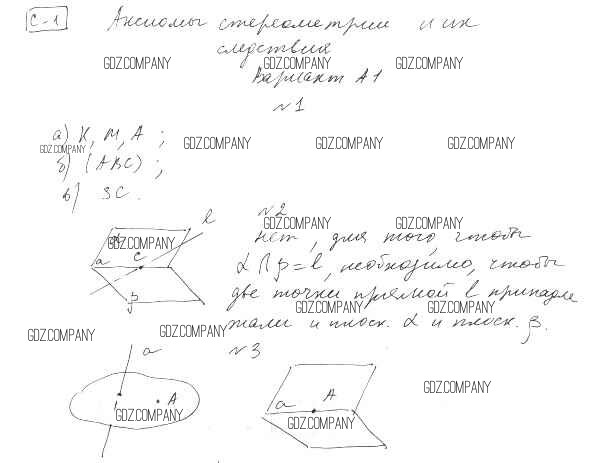 С-1 Аксиомы стереометрии и их
следствия
GDZ.COMPANY GDZ.COMPANY GDZ.COMPANY
Вариант А1
№1
а) К, М, А ;
GDZ.COMPANY GDZ.COMPANY GDZ.COMPANY GDZ.COMPANY
б) (АВС) ;
в) SC.
№2
l
GDZ.COMPANY GDZ.COMPANY
нет, для того, чтобы
GDZ.COMPANY
a C
α ∩ β = l, необходимо, чтобы
β
две точки прямой l принадле
GDZ.COMPANY GDZ.COMPANY
жали и плоск. α и плоск. β.
GDZ.COMPANY GDZ.COMPANY
a №3
GDZ.COMPANY
A a A
GDZ.COMPANY GDZ.COMPANY